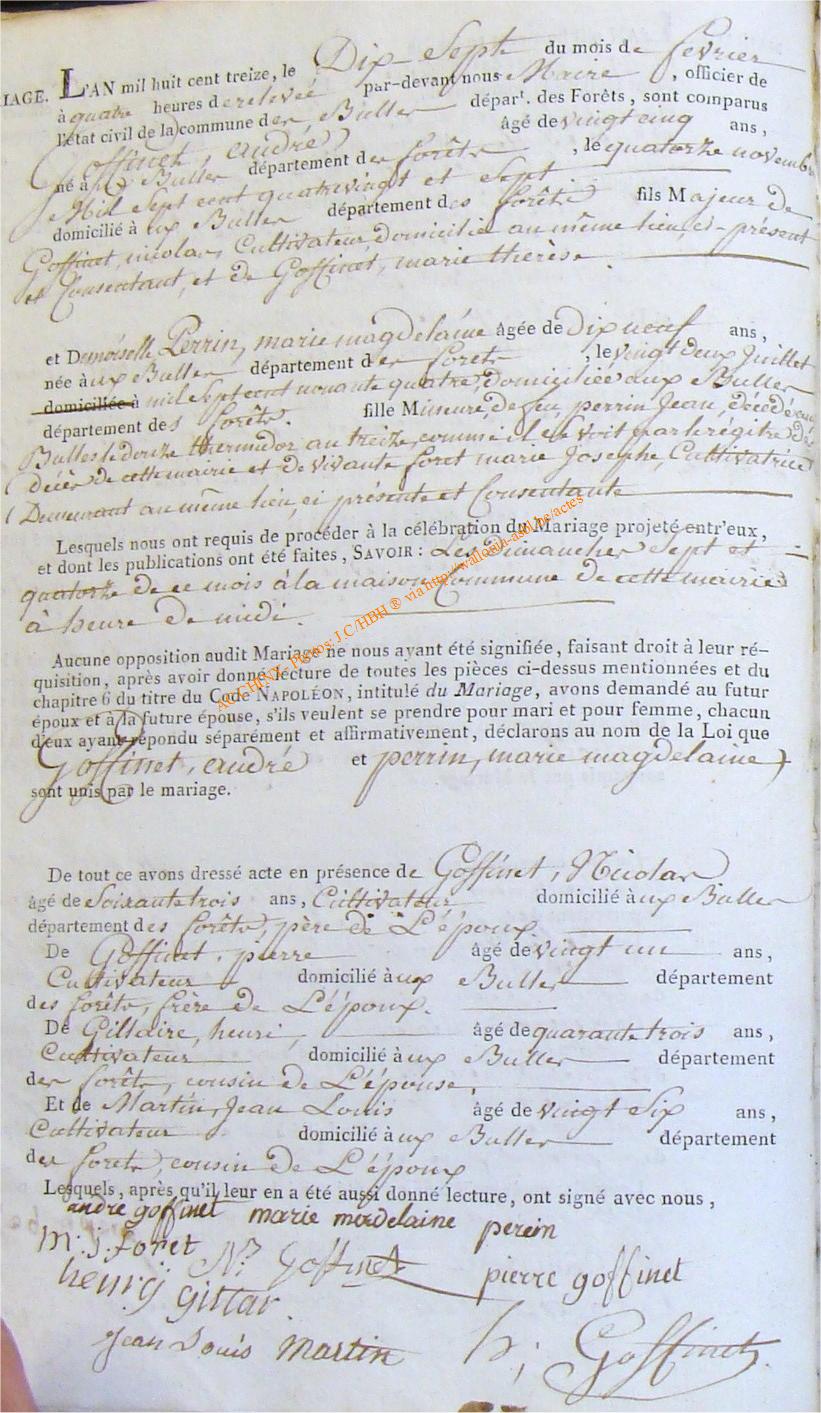 IAGE. L'AN mil huit cent treize, le Dix-Sept du mois de fevrier
à quatre heures de relevée par-devant nous Maire, officier de
l'état civil de la commune des Bulles départ. des Forêts, sont comparus
Goffinet, andré âgé de vingt cinq ans,
né à ux Bulles département des forêts, le quatorze novembre
Mil Sept cent quatrevingt et Sept
domicilié à ux Bulles département des forêts fils Majeur de
Goffinet, nicolas, Cultivateur domicilié au même lieu, ci-présent
et Consentant, et de Goffinet, marie therèse.
et Demoiselle Perrin, marie magdelaine âgée de Dix neuf ans,
née à ux Bulles département des forêts, le vingt deux Juillet
domiciliée à mil Sept cent nonante quatre, domiciliée aux Bulles
département des forêts. fille Mineure, de feu perrin Jean, décédé aux
Bulles le douze thermidor an treize, comme il se voit par le régitre des
Décès de cette mairie et de vivante foret marie Josephe, Cultivatrice
Demeurant au même lieu, ci présente et Consentante
Lesquels nous ont requis de procéder à la célébration du Mariage projeté entr'eux,
et dont les publications ont été faites, SAVOIR : Les Dimanches Sept et
quatorze de ce mois à la maison Commune de cette mairie
à heure de midi.
ACGHFNX - Photos: J.C/HBH ® via http://wallonia-asbl.be/actes
Aucune opposition audit Mariage ne nous ayant été signifiée, faisant droit à leur ré-
quisition, après avoir donné lecture de toutes les pièces ci-dessus mentionnées et du
chapitre 6 du titre du Code NAPOLÉON, intitulé du Mariage, avons demandé au futur
époux et à la future épouse, s'ils veulent se prendre pour mari et pour femme, chacun
d'eux ayant répondu séparément et affirmativement, déclarons au nom de la Loi que
Goffinet, andré et perrin, marie magdelaine
sont unis par le mariage.
De tout ce avons dressé acte en présence de Goffinet, Nicolas
âgé de Soixante trois ans, Cultivateur domicilié à ux Bulles
département des forêts, père de L'époux.
De Goffinet, pierre âgé de vingt un ans,
Cultivateur domicilié à ux Bulles département
des forêts, frère de L'époux.
De Gillaire, henri, âgé de quarante trois ans,
Cultivateur domicilié à ux Bulles département
des forêts, cousin de L'épouse,
Et de Martin, Jean Louis âgé de vingt Six ans,
Cultivateur domicilié à ux Bulles département
des forêts, cousin de L'époux
Lesquels, après qu'il leur en a été aussi donné lecture, ont signé avec nous,
andre goffinet marie madelaine perein
m: j. foret N. Goffinet pierre goffinet
henrij gillar.
Jean Louis martin h; Goffinet.